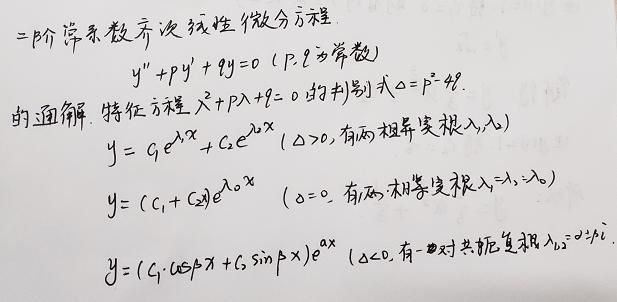 二阶常系数齐次线性微分方程.
y''+py'+qy=0 (p,q为常数)
的通解. 特征方程λ²+pλ+q=0的判别式Δ=p²-4q.
y=c₁e^{λ₁x}+c₂e^{λ₂x} (Δ>0, 有两相异实根λ₁,λ₂)
y=(c₁+c₂x)e^{λ₀x} (Δ=0, 有两相等实根λ₁=λ₂=λ₀)
y=(c₁·cosβx+c₂sinβx)e^{αx} (Δ<0, 有一对共轭复根λ₁,₂=α±βi.